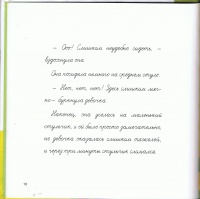 – Ох! Слишком неудобно сидеть, –
вздохнула та.
Она посидела немного на среднем стуле.
– Нет, нет, нет! Здесь слишком мяг-
ко – буркнула девочка.
Наконец, та уселась на маленький
стульчик, и он было просто замечательно,
но девочка оказалась слишком тяжёлой,
и через три минуты стульчик сломался.